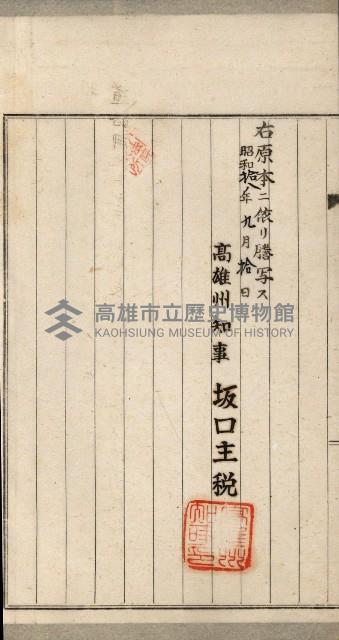 右原本ニ依リ謄写ス
昭和拾八年九月拾日
高雄州知事 坂口主税
高雄市立歷史博物館
KAOHSIUNG MUSEUM OF HISTORY